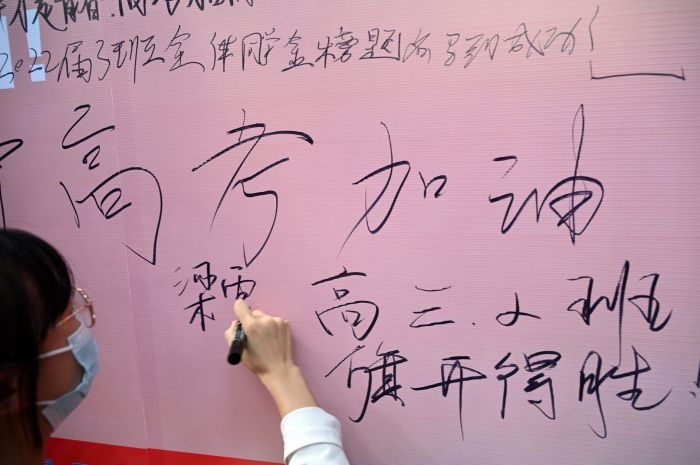 2022届3班全体同学金榜题名马到成功!
高考加油
梁
高三.2班
旗开得胜!